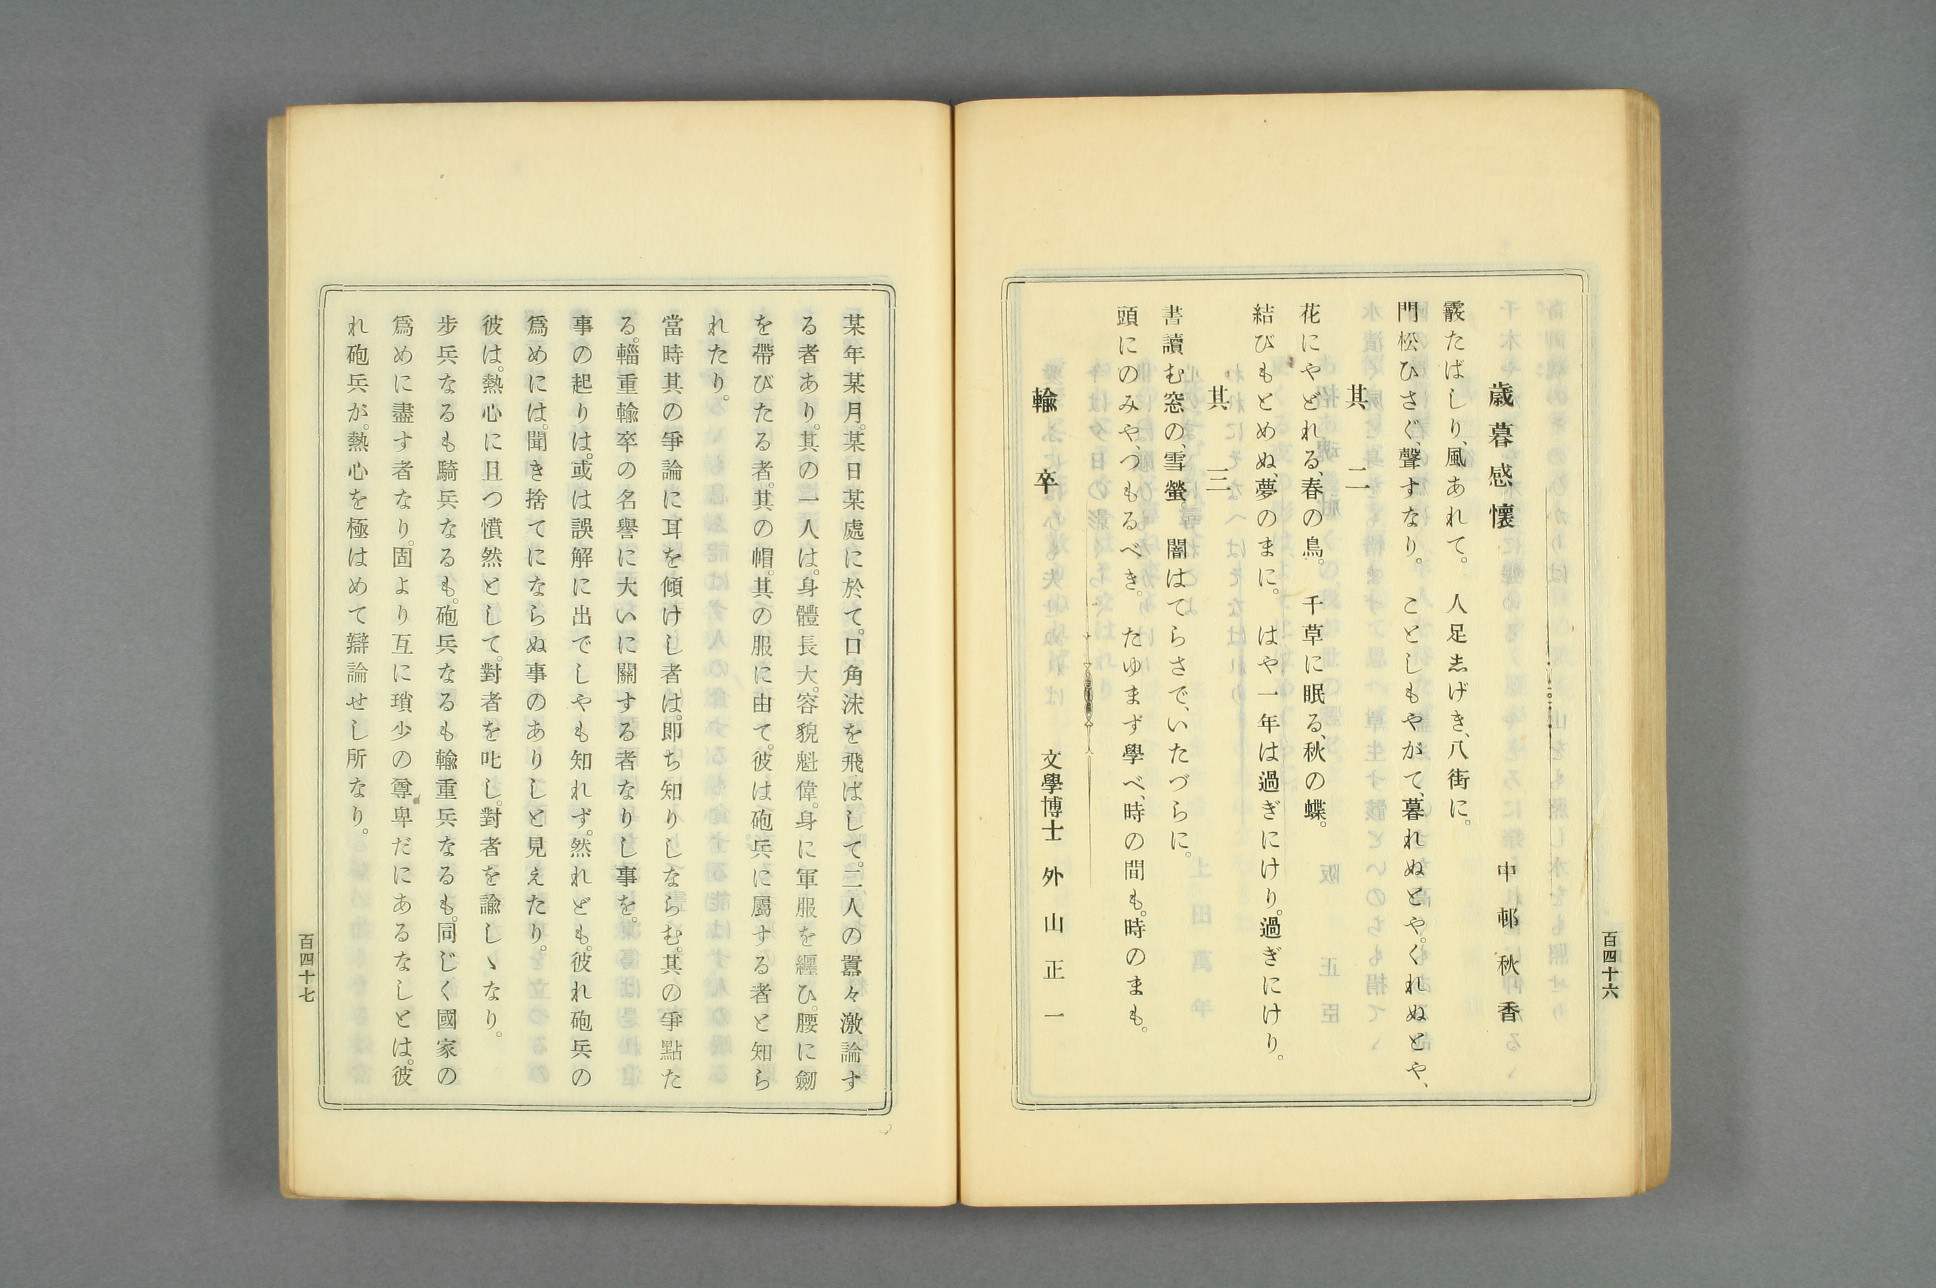 歳暮感懷
中邨秋香
霰たばしり、風あれて。　人足志げき、八街に。
門松ひさぐ、聲すなり。　ことしもやがて、暮れぬとや。くれぬとや、
其二
花にやどれる、春の鳥。　千草に眠る、秋の蝶。
結びもとめぬ、夢のまに。　はや一年は過ぎにけり。過ぎにけり。
其三
書讀む窓の、雪螢。　闇はてらさで、いたづらに。
頭にのみや、つもるべき。　たゆまず學べ、時の間も。時のまも。
輸卒
文學博士　外山正一
百四十六
某年某月。某日某處に於て。口角沫を飛ばして。二人の囂々激論す
る者あり。其の一人は。身體長大。容貌魁偉。身に軍服を纒ひ。腰に劒
を帶びたる者。其の帽。其の服に由て。彼は砲兵に屬する者と知ら
れたり。
當時其の爭論に耳を傾けし者は。即ち知りしならむ。其の爭點た
る。輜重輸卒の名譽に大いに關する者なりし事を。
事の起りは。或は誤解に出でしやも知れず。然れども。彼れ砲兵の
爲めには。聞き捨てにならぬ事のありしと見えたり。
彼は。熱心に且つ憤然として。對者を叱し。對者を諭しゝなり。
步兵なるも騎兵なるも。砲兵なるも輸重兵なるも。同じく國家の
爲めに盡す者なり。固より互に瑣少の尊卑だにあるなしとは。彼
れ砲兵が。熱心を極はめて辯論せし所なり。
百四十七